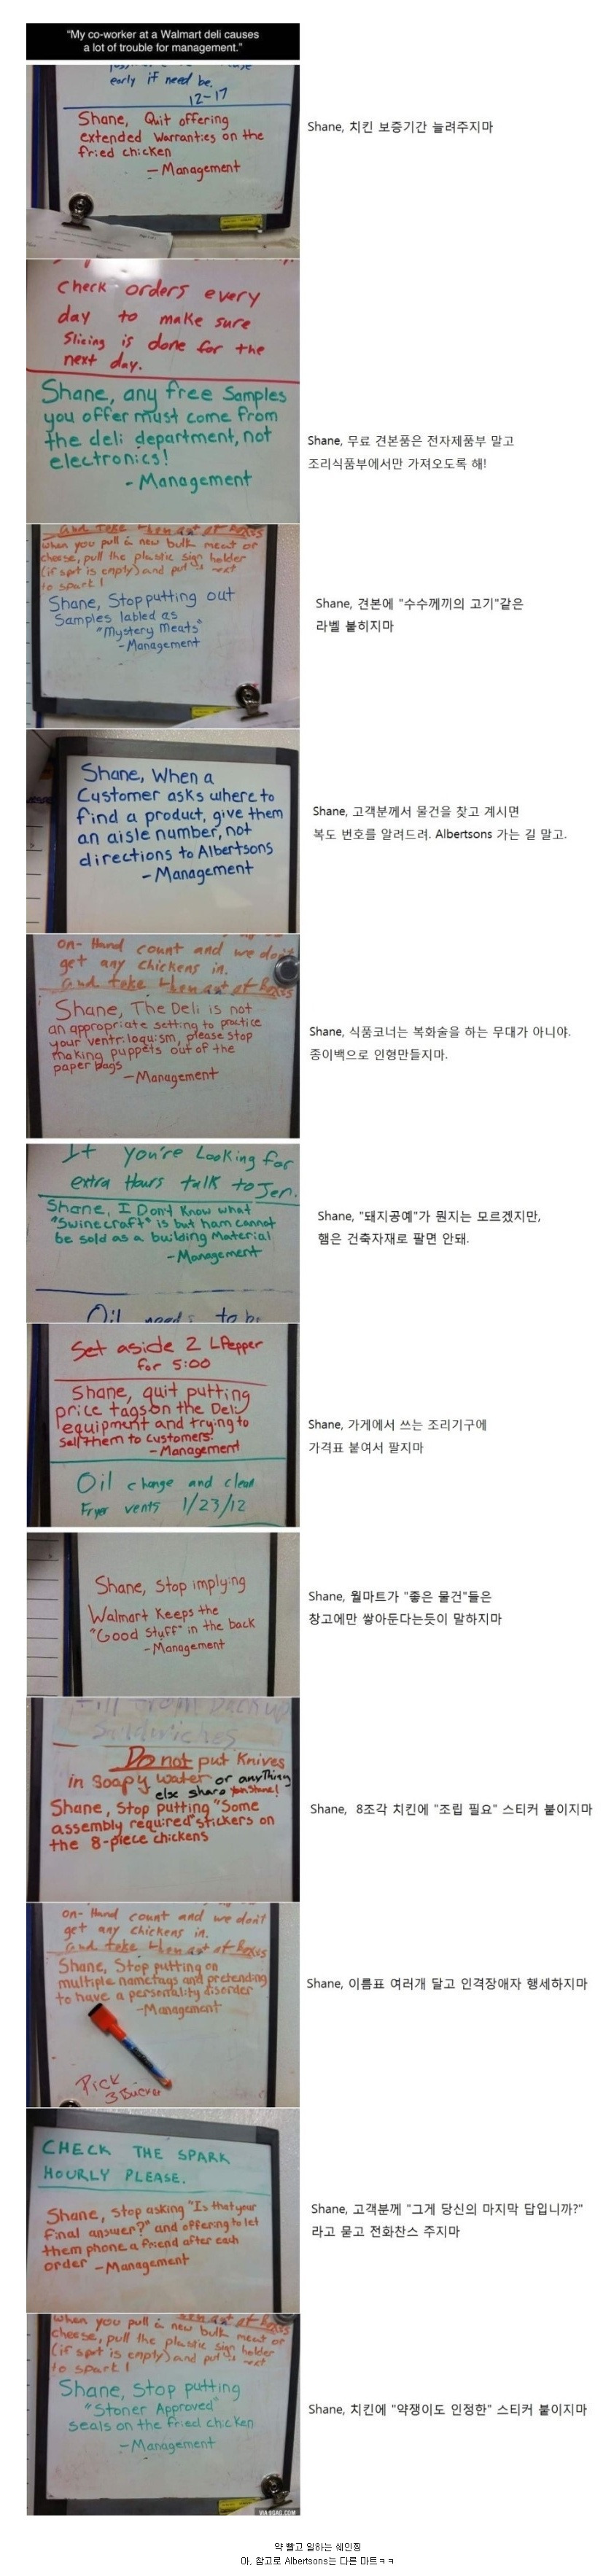 "My co-worker at a Walmart deli causes
a lot of trouble for management."
early if need be.
12-17
Shane, Quit offering
extended Warranties on the
fried chicken
- Management
Shane, 치킨 보증기간 늘려주지마
check orders every
day to make sure
Slicing is done for the
next day.
Shane, any free Samples
you offer must come from
the deli department, not
electronics!
- Management
Shane, 무료 견본품은 전자제품부 말고
조리식품부에서만 가져오도록 해!
and take them out of Boxes
when you pull a new bulk meat or
cheese, pull the plastic sign holder
(if spot is empty) and put next
to spark!
Shane, Stop putting out
Samples labled as
"Mystery Meats"
- Management
Shane, 견본에 "수수께끼의 고기"같은
라벨 붙히지마
Shane, When a
Customer asks where to
find a product, give them
an aisle number, not
directions to Albertsons
- Management
Shane, 고객분께서 물건을 찾고 계시면
복도 번호를 알려드려. Albertsons 가는 길 말고.
on-Hand count and we don't
get any chickens in.
and take them out of Boxes
Shane, The Deli is not
an appropriate setting to practice
your ventriloquism, please stop
making puppets out of the
paper bags
- Management
Shane, 식품코너는 복화술을 하는 무대가 아니야.
종이백으로 인형만들지마.
If you're Looking for
extra Hours talk to Jen.
Shane, I Don't Know what
"Swinecraft" is but ham cannot
be sold as a building Material
- Management
Oil needs to be
Shane, "돼지공예"가 뭔지는 모르겠지만,
햄은 건축자재로 팔면 안돼.
Set aside 2 LPepper
for 5:00
Shane, quit putting
price tags on the Deli
equipment and trying to
sell them to customers!
- Management
Oil change and clean
Fryer vents 1/23/12
Shane, 가게에서 쓰는 조리기구에
가격표 붙여서 팔지마
Shane, Stop implying
Walmart Keeps the
"Good Stuff" in the back
- Management
Shane, 월마트가 "좋은 물건"들은
창고에만 쌓아둔다는듯이 말하지마
Fill from backup
Sandwiches
Do not put Knives
in Soapy water or anything
else sharp
Shane, Stop putting "Some
assembly required" stickers on
the 8-piece chickens
Shane, 8조각 치킨에 "조립 필요" 스티커 붙이지마
on-Hand count and we don't
get any chickens in.
and take them out of Boxes
Shane, Stop putting on
multiple nametags and pretending
to have a personality disorder
- Management
Pick
3 Bucket
Shane, 이름표 여러개 달고 인격장애자 행세하지마
CHECK THE SPARK
HOURLY PLEASE.
Shane, stop asking "Is that your
final answer?" and offering to let
them phone a friend after each
order - Management
Shane, 고객분께 "그게 당신의 마지막 답입니까?"
라고 묻고 전화찬스 주지마
them out of Boxes
when you pull a new bulk meat or
cheese, pull the plastic sign holder
(if spot is empty) and put next
to spark!
Shane, Stop putting
"Stoner Approved"
seals on the fried chicken
- Management
Shane, 치킨에 "약쟁이도 인정한" 스티커 붙이지마
VIA 9GAG.COM
약 빨고 일하는 쉐인찡
아, 참고로 Albertsons는 다른 마트ㅋㅋ